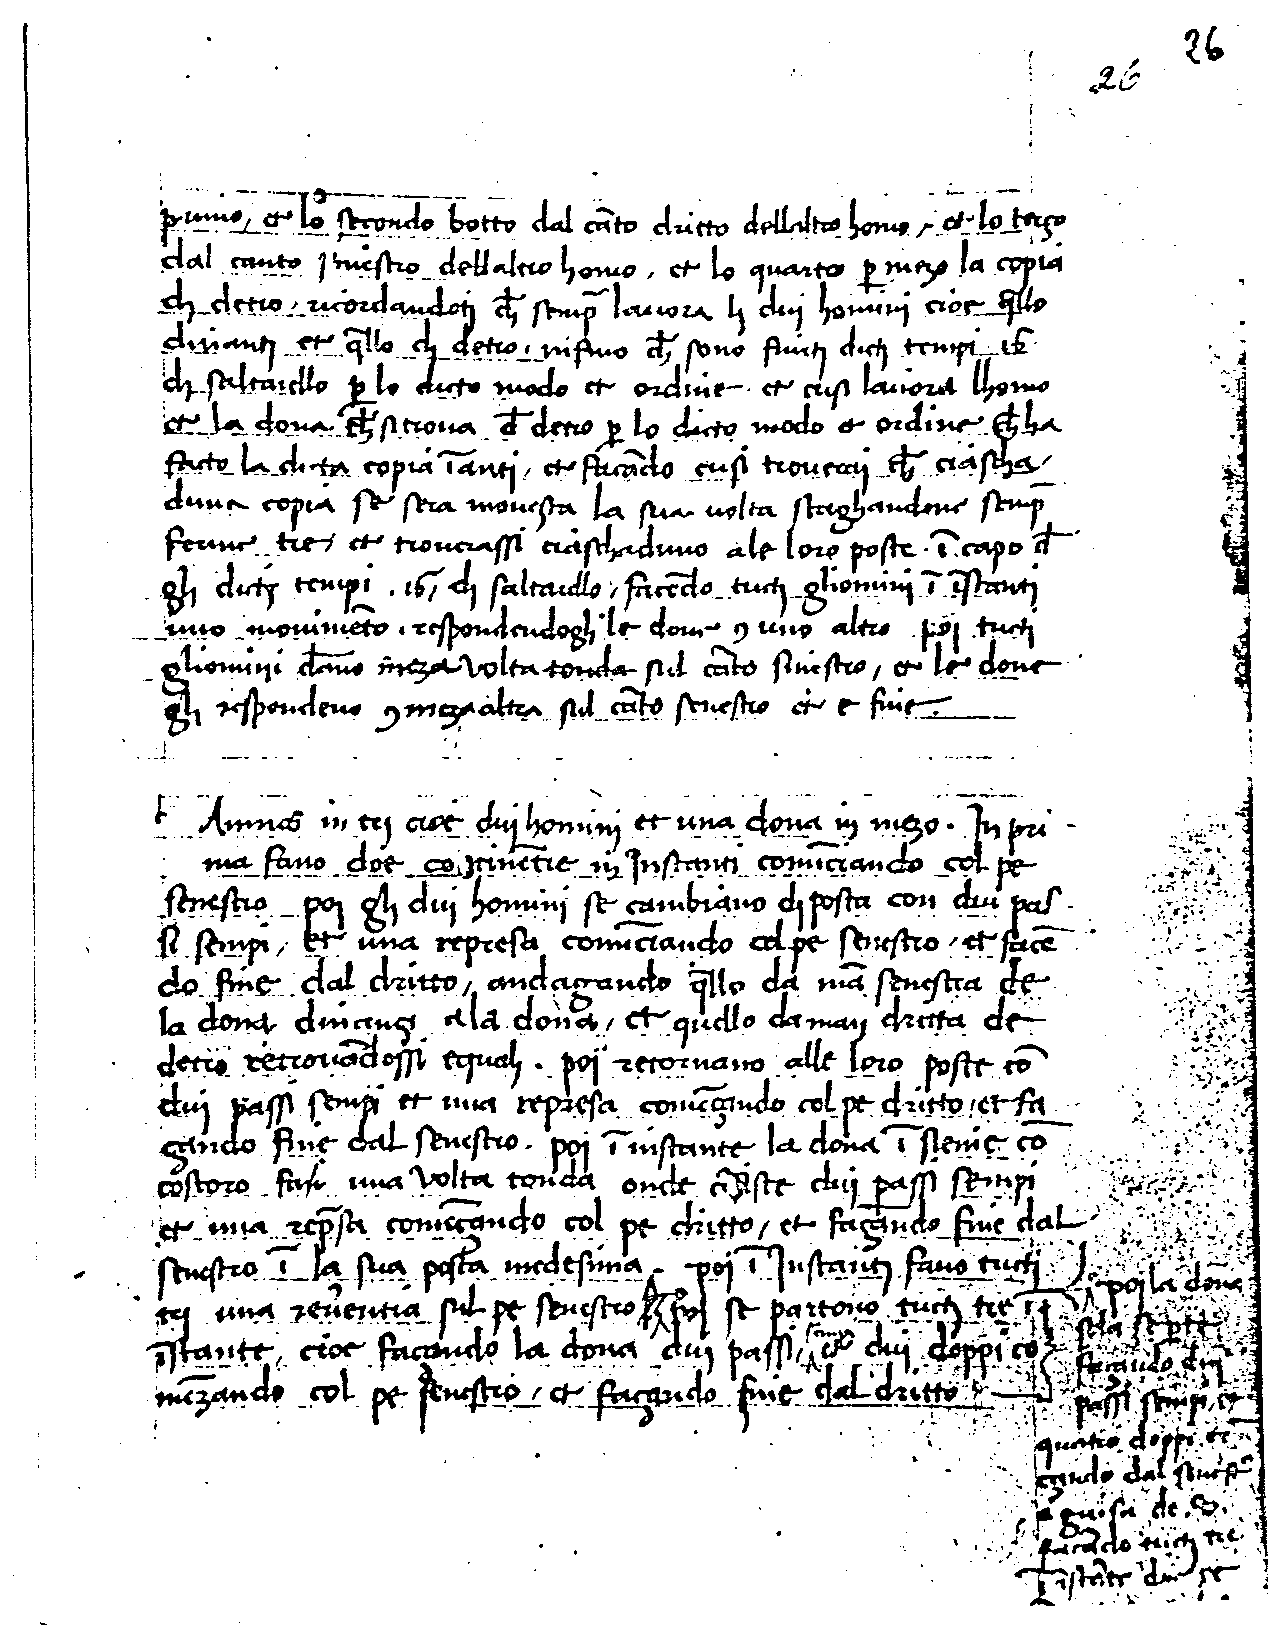 26
26
primo, et lo secondo botto dal cāto dritto dellaltro homo, et lo terzo
dal canto sinestro dellaltro homo, et lo quarto p mezo la copia
di detro, ricordandoti ch semp lavora li dui homini cioe qllo
dinanti et qllo di detro, infino ch sono finiti dicti tempi 16
di saltarello p lo dicto modo et ordine et cusi lavora lhomo
et la dona ch si trova d detro p lo dicto modo et ordine ch ha
facto la dicta copia īanti, et facēdo cusi troverai ch ciascha
duna copia se sera movesta la sua volta staghandone semp
ferme tre, et troverassi ciaschaduno ale loro poste ī capo d
gli dicti tempi .16. di saltarello, facēdo tucti gliomini ī īstanti
uno movimēto, respondendogli le done ꝯ uno altro poi tucti
gliomini dāno meza volta tonda sul cāto sinestro, et le done
gli respondeno ꝯ meza altra sul cāto senestro et e fine.
Amoros in trei cioe dui homini et una dona in mezo. In pri
ma fano doe cōtinētie in Instanti comēciando col pe
senestro poi gli dui homini se cambiano di posta con dui pas
si sempi, et una represa comēciando col pe senestro, et facē
do fine dal dritto, andagando qllo da mā senestra de
la dona dinanzi ala dona, et quello da man dritta de
detro retrovādossi equali. poi retornano alle loro poste cō
dui passi sempi et una represa comēzando col pe dritto, et fa
zando fine dal senestro. poi ī instante la dona īsieme cō
costoro fan una volta tonda onde cōsiste dui passi sempi
et una repsa comēzando col pe dritto, et fazando fine dal
senestro ī la sua posta medesima. poi ī Instanti fano tucti
trei una reverentia sul pe senestro poi se partono tucti tre ī
īstante, cioe facendo la dona dui passi sempi et dui doppi co
menzando col pe senestro, et fazando fine dal dritto
poi la dona
sola se pte
facendo dui
passi sempi, et
quatro doppi et
zando dal senestro
a guisa de .S.
facēdo tucti tre
ī īstāte